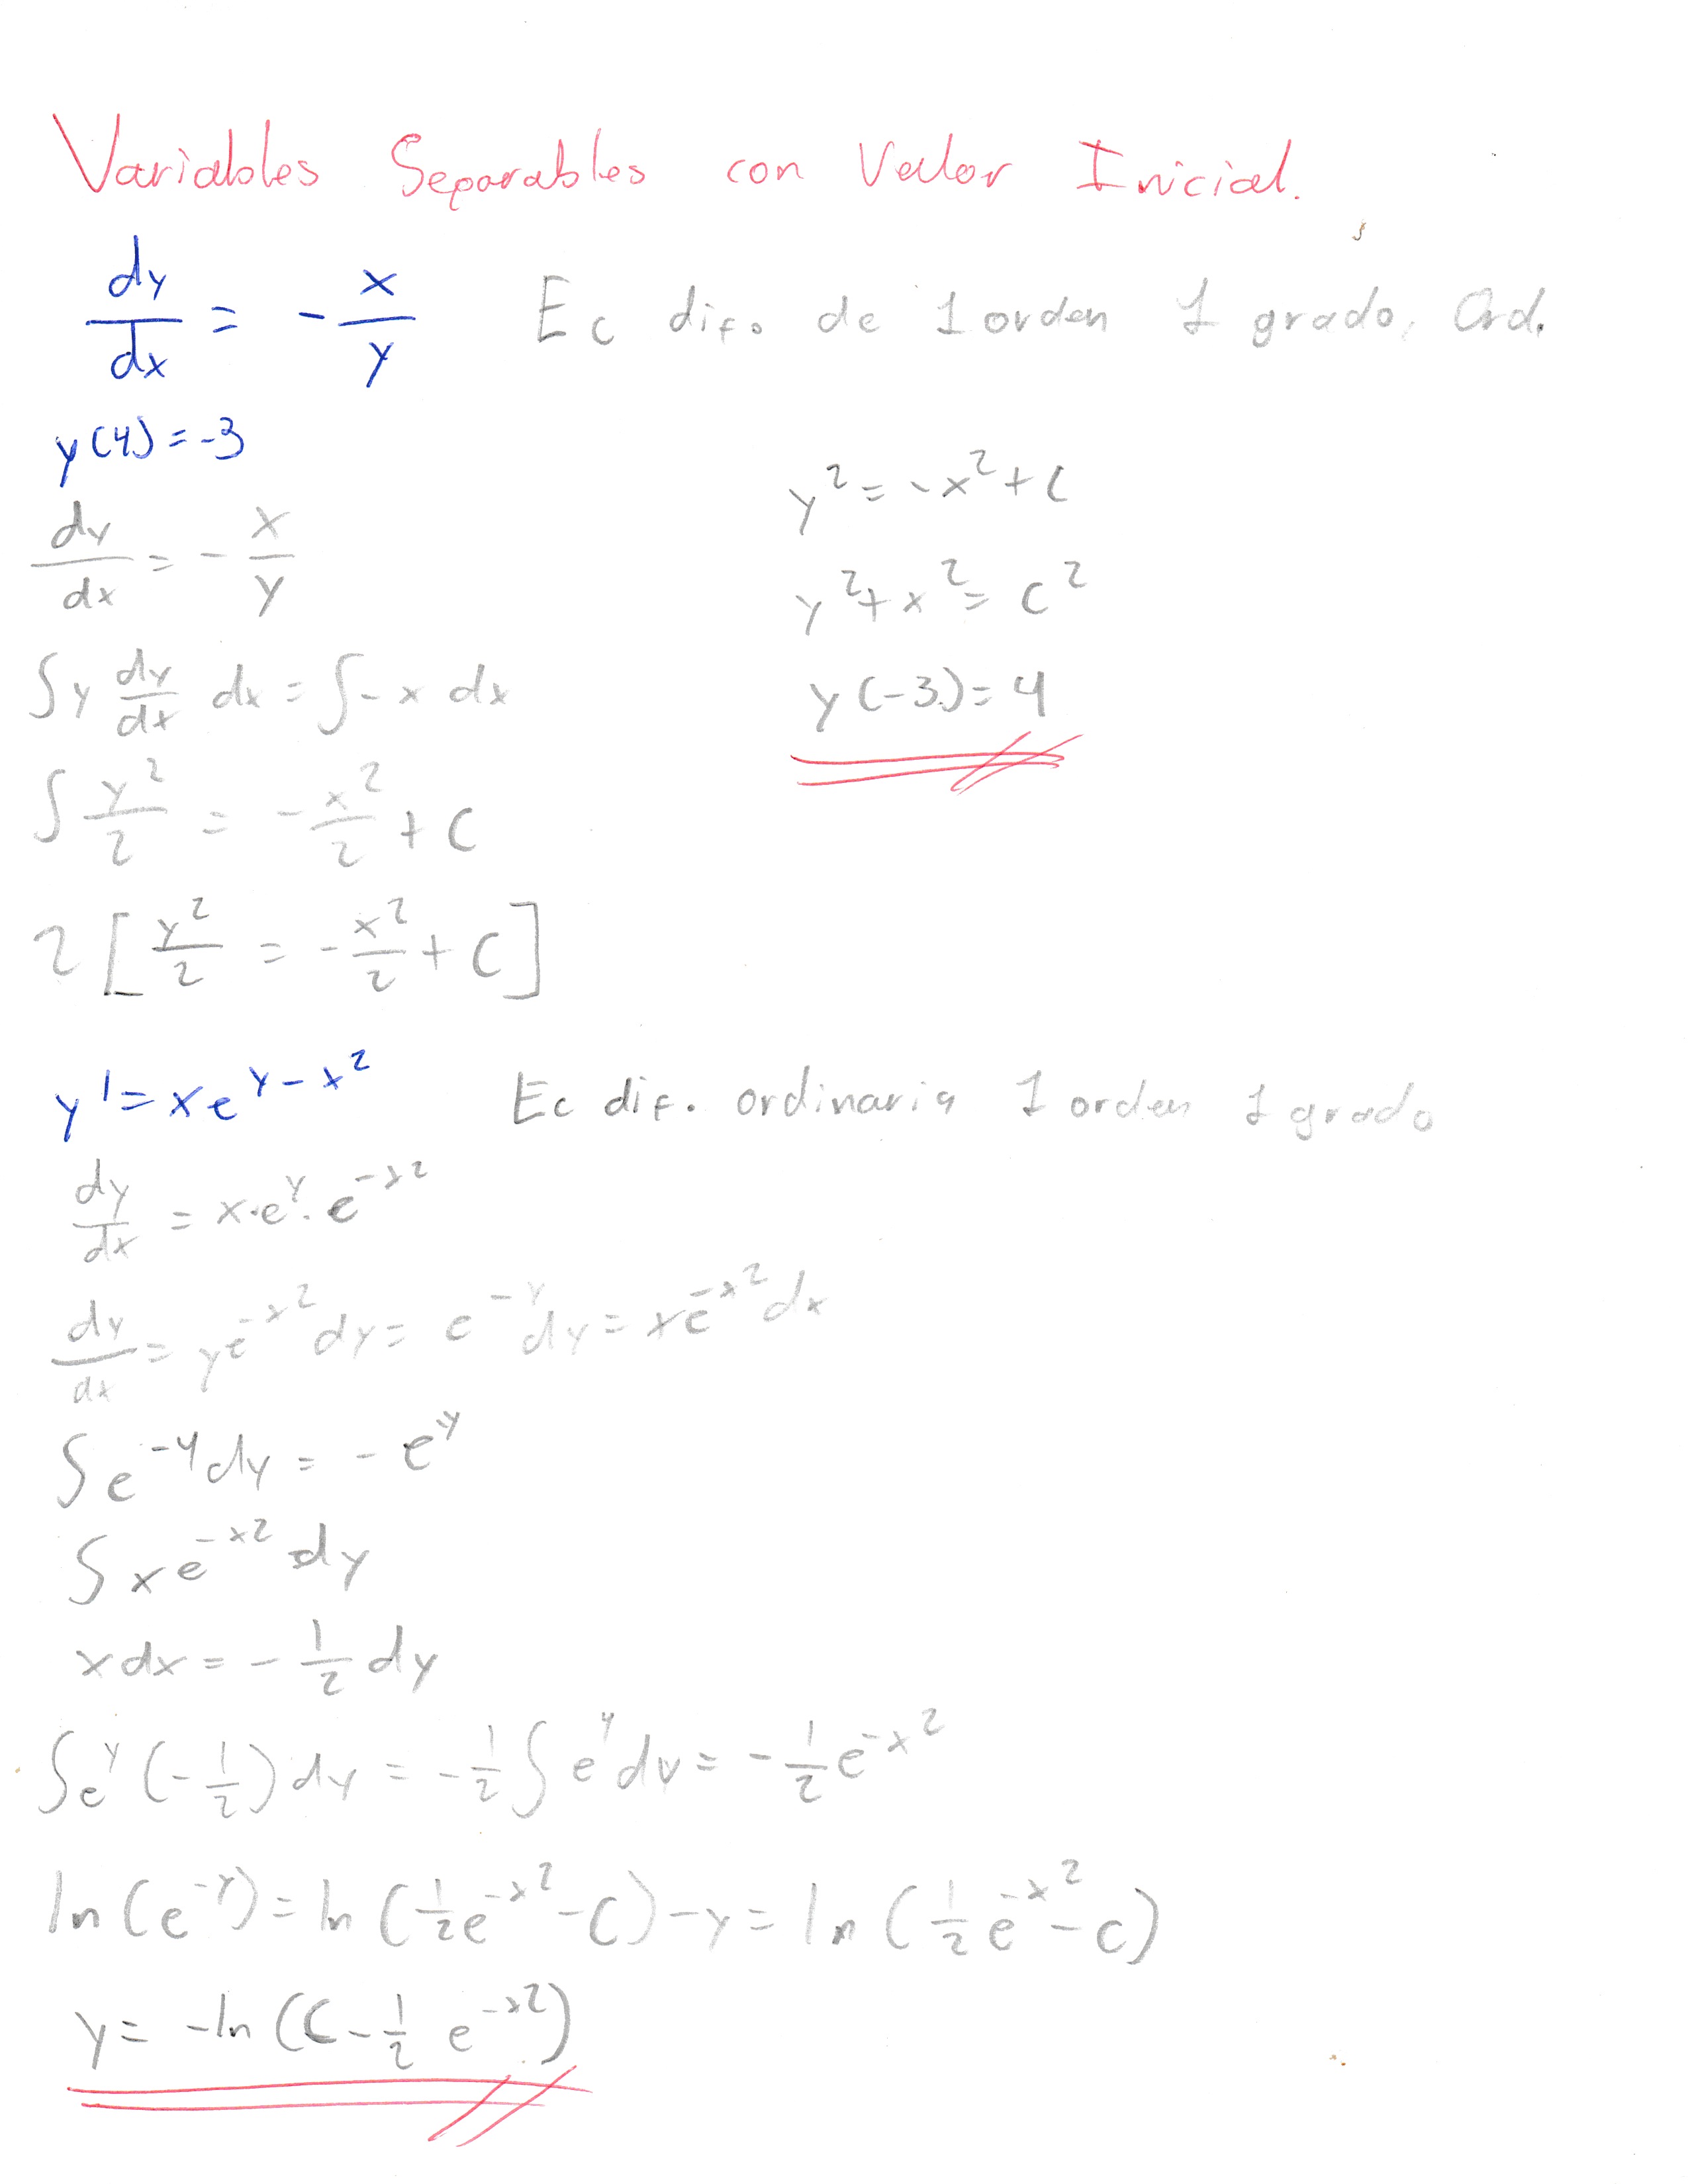 Variables Separables con Valor Inicial.
dy/dx = - x/y Ec dif. de 1 orden 1 grado, Ord.
y(4)=-3
dy/dx = - x/y
∫y dy/dx dx = ∫-x dx
∫ y²/2 = - x²/2 + C
2[ y²/2 = - x²/2 + C ]
y² = -x² + C
y² + x² = C²
y(-3)=4
y' = xe^(y-x²) Ec dif. ordinaria 1 orden 1 grado
dy/dx = x·e^y·e^(-x²)
dy/dx = ye^(-x²) dy = e^(-y) dy = xe^(-x²) dx
∫e^(-y) dy = -e^y
∫xe^(-x²) dy
x dx = - 1/2 dy
∫e^y (- 1/2) dy = - 1/2 ∫e^y dv = - 1/2 e^(-x²)
ln(e^(-y)) = ln(1/2 e^(-x²) - C) -y = ln(1/2 e^(-x²) - C)
y = -ln(C - 1/2 e^(-x²))